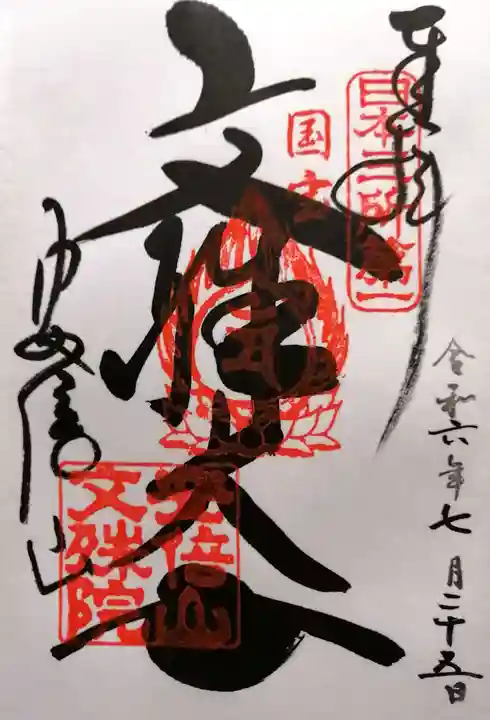 奉拝
日本三文殊第一
国宝
令和六年七月二十五日
文殊大士
安倍山
安倍山
文殊院